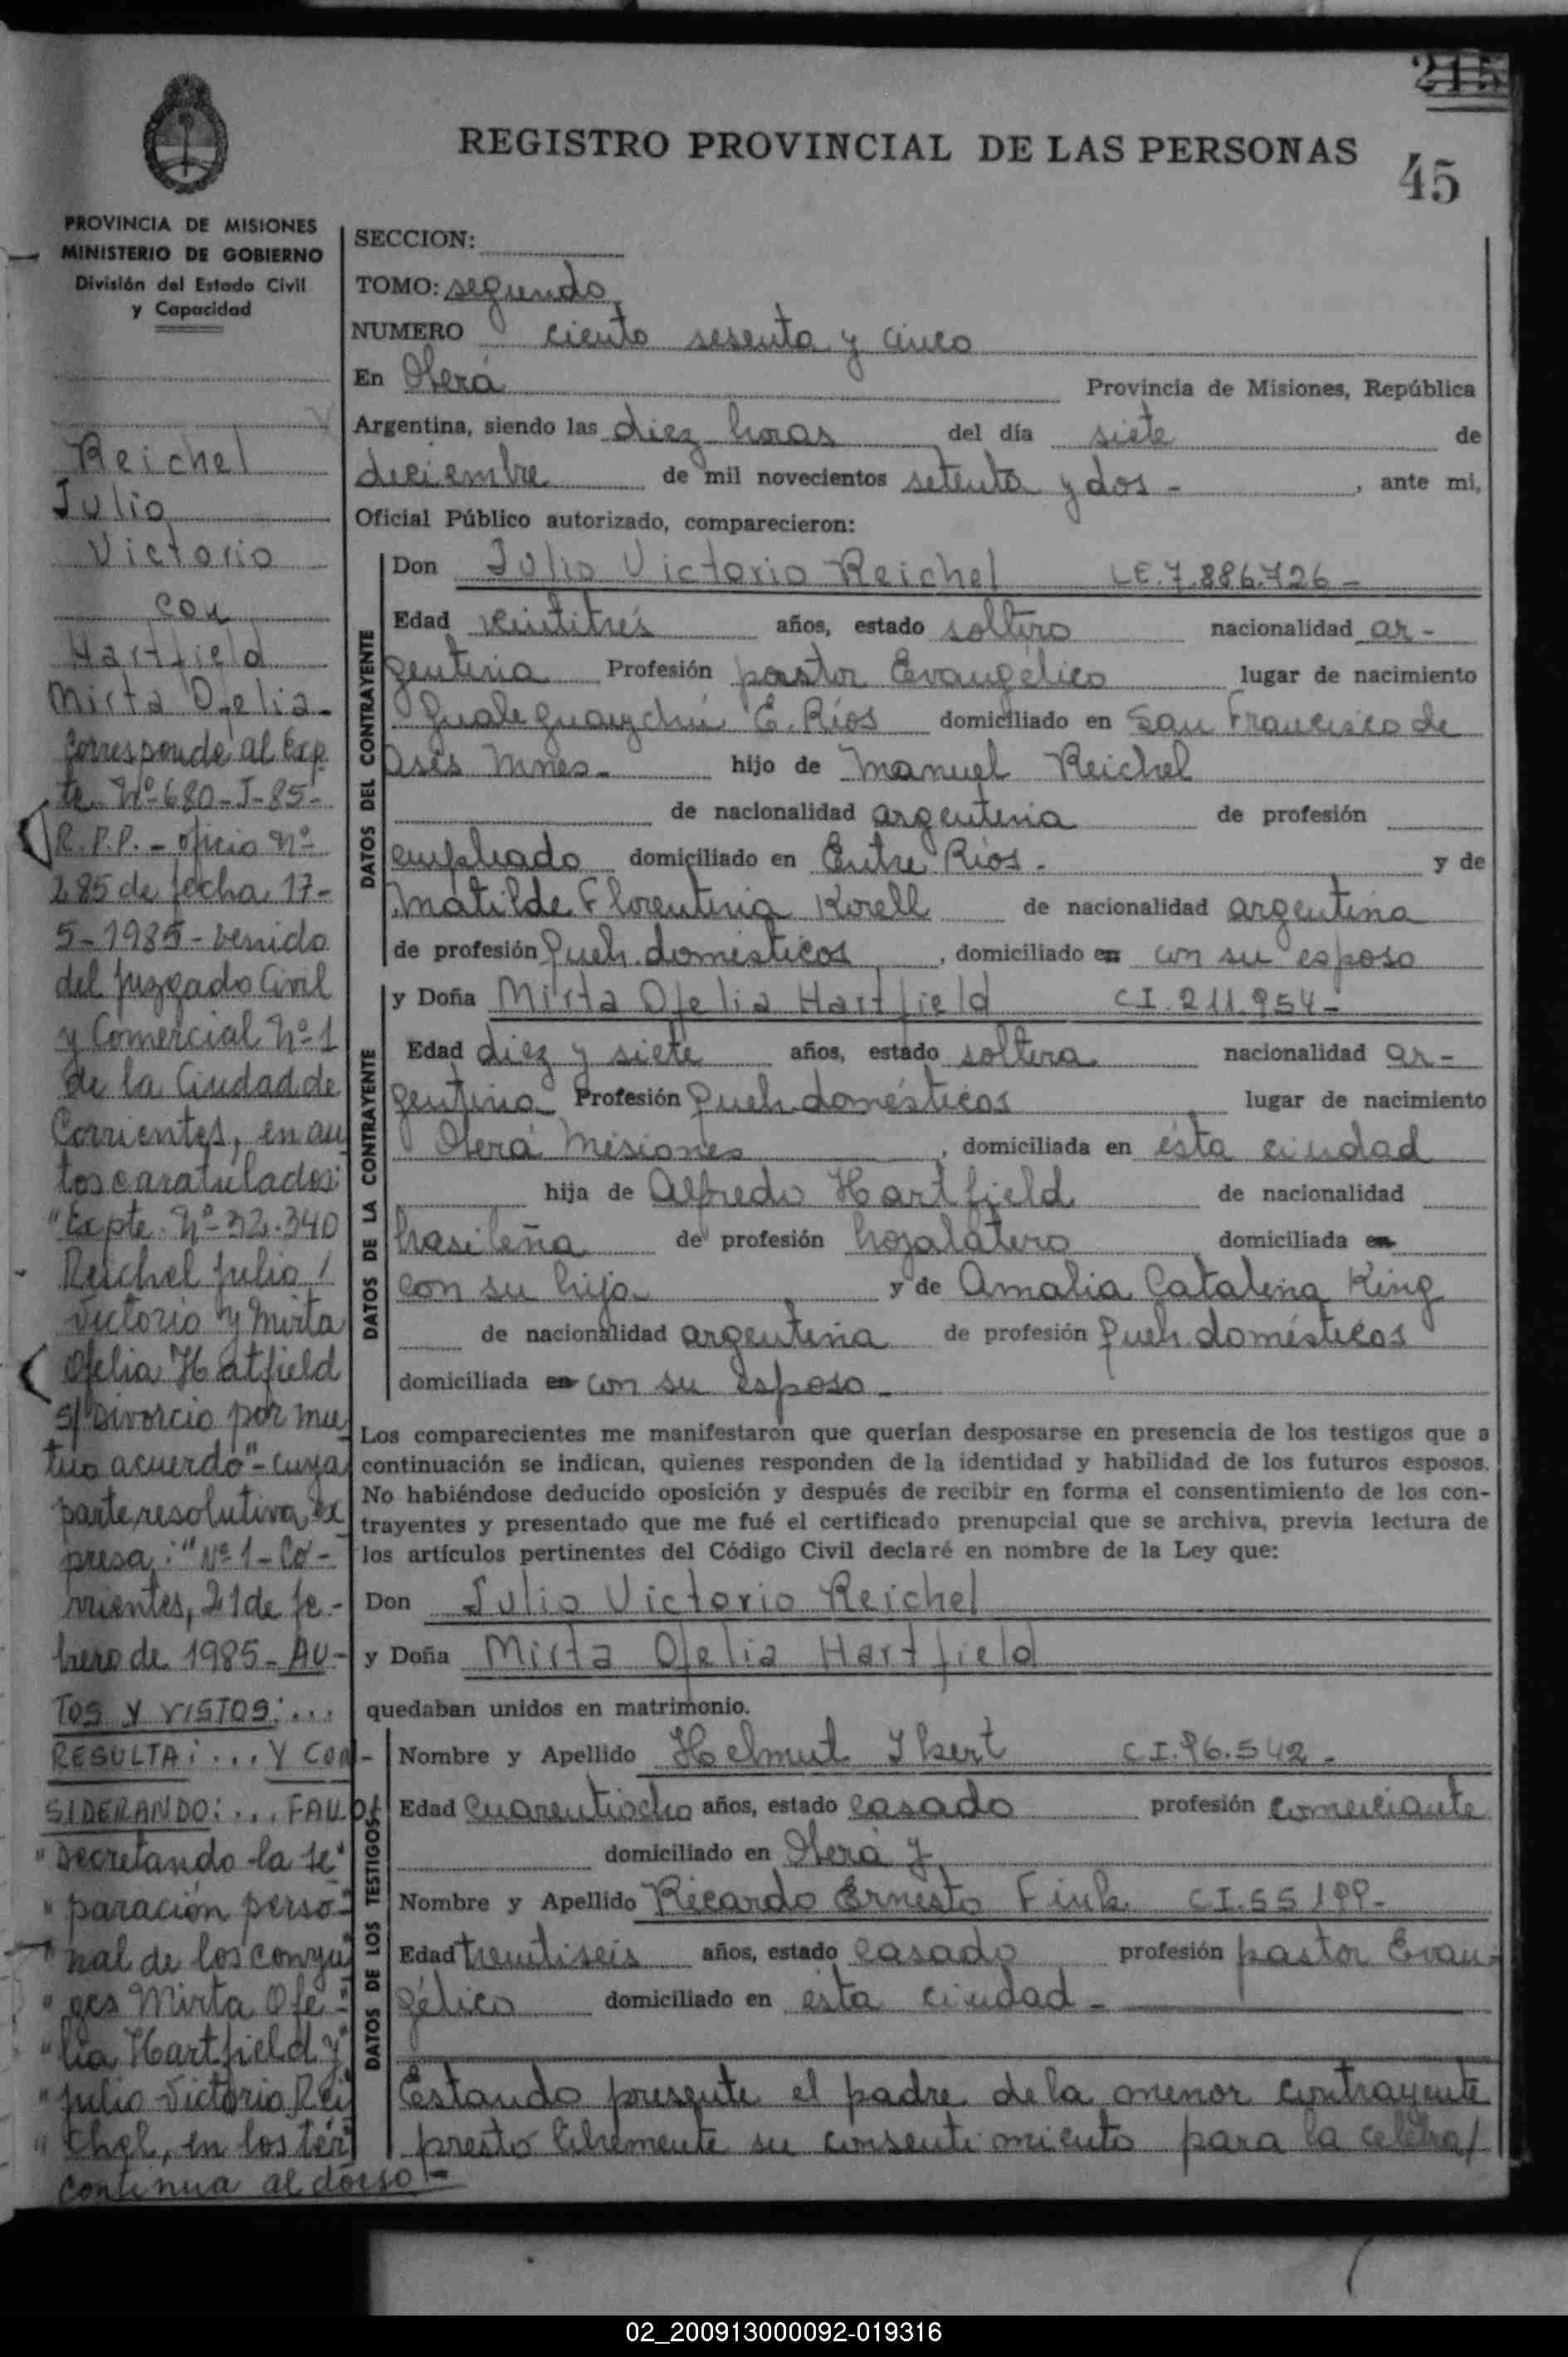 215
REGISTRO PROVINCIAL DE LAS PERSONAS
45
PROVINCIA DE MISIONES
MINISTERIO DE GOBIERNO
División del Estado Civil
y Capacidad
Reichel
Julio
Victorio
con
Hartfield
Mirta Ofelia-
Corresponde al Exp.
te. Nº 680-J-85-
R.P.P. - oficio nº
285 de fecha 17-
5-1985- venido
del Juzgado Civil
y Comercial Nº 1
de la Ciudad de
Corrientes, en au
tos caratulados:
"Expte. Nº 32.340
Reichel Julio /
Victorio y Mirta
Ofelia Hatfield
s/ Divorcio por mu
tuo acuerdo"- cuya
parte resolutiva ex
presa: "Nº 1- Co-
rrientes, 21 de fe-
brero de 1985- AU-
TOS Y VISTOS: ...
RESULTA: ... Y CON-
SIDERANDO: ... FALLO:
"Decretando la se"
"paración perso-"
"nal de los conyu
"ges Mirta Ofe-"
"lia Hartfield y"
"Julio Victorio Rei
"chel, en los tér"
continua al dorso-
SECCION:
TOMO: segundo
NUMERO ciento sesenta y cinco
En Oberá Provincia de Misiones, República
Argentina, siendo las diez horas del día siete de
diciembre de mil novecientos setenta y dos - , ante mi,
Oficial Público autorizado, comparecieron:
DATOS DEL CONTRAYENTE
Don Julio Victorio Reichel LE.7.886.726-
Edad veintitrés años, estado soltero nacionalidad ar-
gentina Profesión pastor Evangélico lugar de nacimiento
Gualeguaychú E. Ríos domiciliado en San Francisco de
Asís Mnes. hijo de Manuel Reichel
de nacionalidad argentina de profesión
empleado domiciliado en Entre Ríos. y de
Matilde Florentina Korell de nacionalidad argentina
de profesión Queh. domésticos , domiciliado en con su esposo
DATOS DE LA CONTRAYENTE
y Doña Mirta Ofelia Hartfield CI.211.954-
Edad diez y siete años, estado soltera nacionalidad ar-
gentina Profesión Queh. domésticos lugar de nacimiento
Oberá Misiones , domiciliada en ésta ciudad
hija de Alfredo Hartfield de nacionalidad
brasileña de profesión hojalatero domiciliada en
con su hija y de Amalia Catalina King
de nacionalidad argentina de profesión Queh. domésticos
domiciliada en con su esposo -
Los comparecientes me manifestaron que querían desposarse en presencia de los testigos que a
continuación se indican, quienes responden de la identidad y habilidad de los futuros esposos.
No habiéndose deducido oposición y después de recibir en forma el consentimiento de los con-
trayentes y presentado que me fué el certificado prenupcial que se archiva, previa lectura de
los artículos pertinentes del Código Civil declaré en nombre de la Ley que:
Don Julio Victorio Reichel
y Doña Mirta Ofelia Hartfield
quedaban unidos en matrimonio.
DATOS DE LOS TESTIGOS
Nombre y Apellido Helmut Ikert C.I.96.542-
Edad Cuarentiocho años, estado casado profesión comerciante
domiciliado en Oberá y
Nombre y Apellido Ricardo Ernesto Fink CI.55199-
Edad treintiseis años, estado casado profesión pastor Evan-
gélico domiciliado en ésta ciudad -
Estando presente el padre de la menor contrayente
prestó libremente su consentimiento para la celebra/
02_200913000092-019316